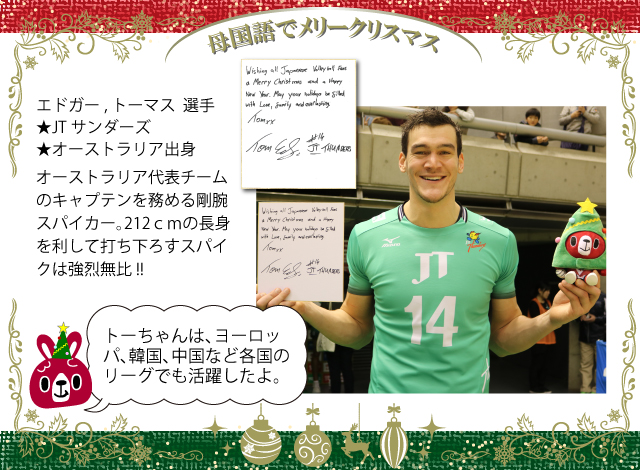 母国語でメリークリスマス
エドガー,トーマス 選手
★JTサンダーズ
★オーストラリア出身
オーストラリア代表チーム
のキャプテンを務める剛腕
スパイカー。212cmの長身
を利して打ち下ろすスパイ
クは強烈無比!!
Wishing all Japanese Volleyball fans
a Merry Christmas and a Happy
New Year. May your holidays be filled
with Love, family and everlasting.
Tom xx
#14
JT THUNDERS
Wishing all Japanese Volleyball fans
a Merry Christmas and a Happy
New Year. May your holidays be filled
with Love, family and everlasting.
Tom xx
#14
JT THUNDERS
MIZUNO
JT
14
トーちゃんは、ヨーロッ
パ、韓国、中国など各国の
リーグでも活躍したよ。